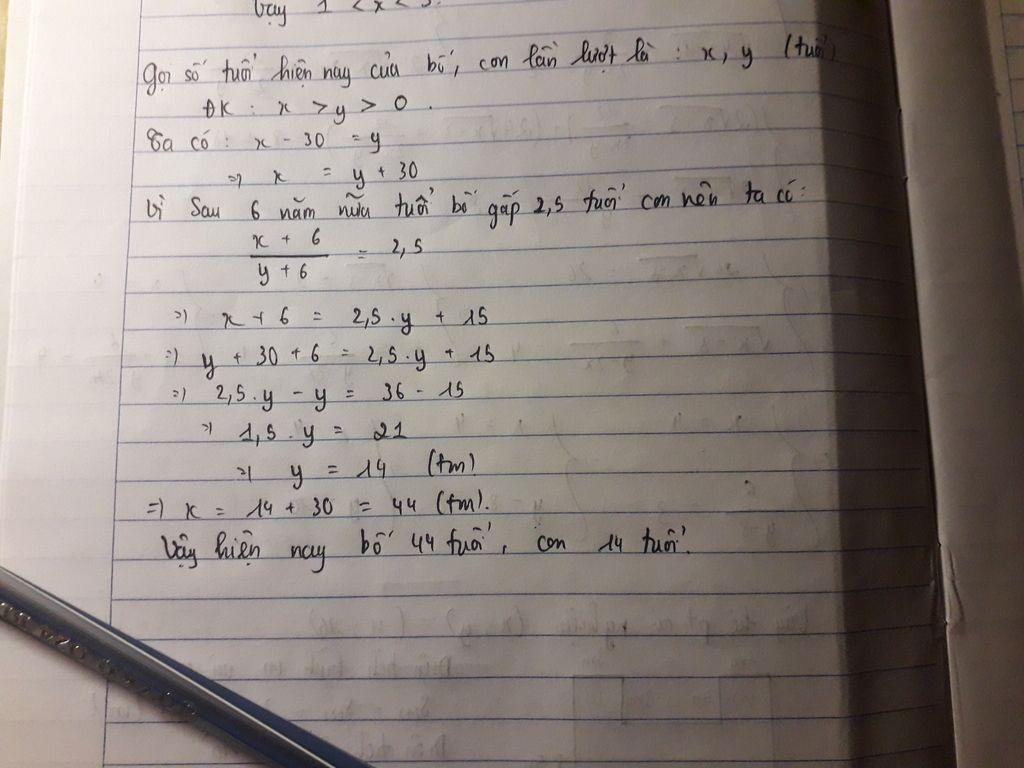 Vậy 1 < x < 3.
Gọi số tuổi hiện nay của bố, con lần lượt là : x, y (tuổi)
ĐK : x > y > 0 .
Ta có : x - 30 = y
=> x = y + 30
Vì sau 6 năm nữa tuổi bố gấp 2,5 tuổi con nên ta có :
x + 6 / y + 6 = 2,5
=> x + 6 = 2,5 . y + 15
=> y + 30 + 6 = 2,5 . y + 15
=> 2,5 . y - y = 36 - 15
=> 1,5 . y = 21
=> y = 14 (tm)
=> x = 14 + 30 = 44 (tm).
Vậy hiện nay bố 44 tuổi, con 14 tuổi.